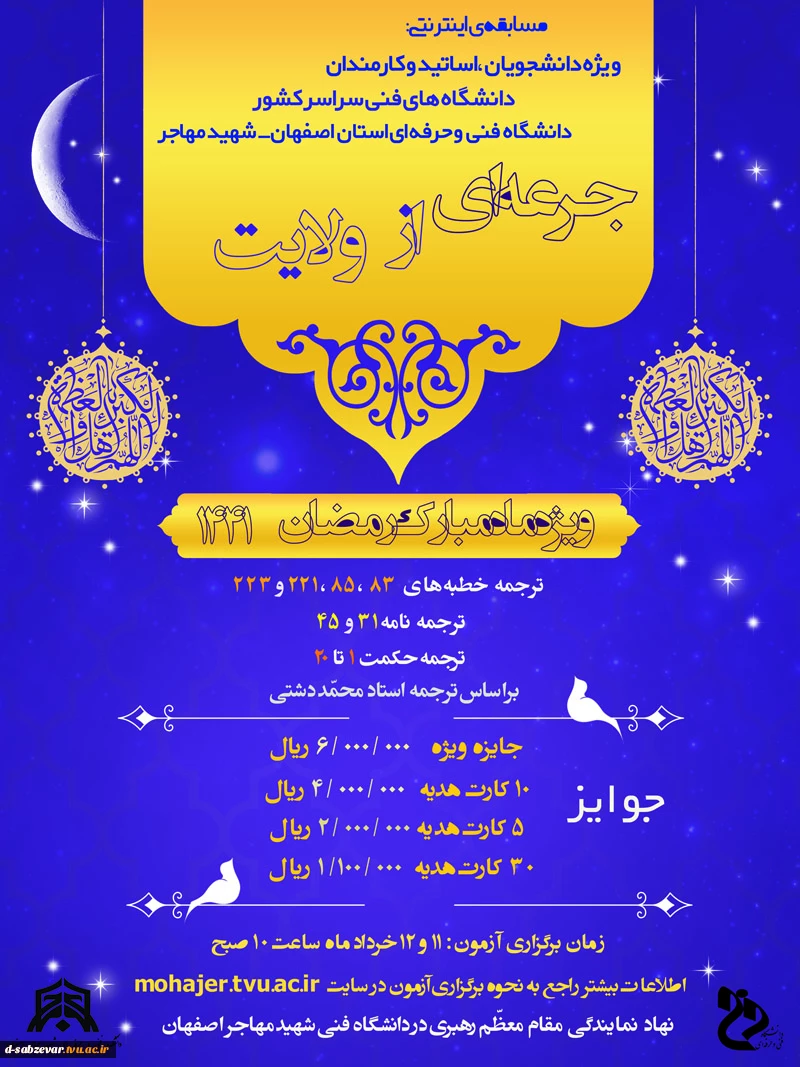 مسابقه‌ی اینترنتی:
ویژه دانشجویان، اساتید و کارمندان
دانشگاه های فنی سراسر کشور
دانشگاه فنی و حرفه ای استان اصفهان_ شهید مهاجر
جرعه‌ای از ولایت
اللهم اهل الکبریاء والعظمة
اللهم اهل الکبریاء والعظمة
ویژه ماه مبارک رمضان ۱۴۴۱
ترجمه خطبه های ۸۳ ،۸۵ ،۲۲۱ و ۲۲۳
ترجمه نامه ۳۱ و ۴۵
ترجمه حکمت ۱ تا ۲۰
براساس ترجمه استاد محمّد دشتی
جوایز
جایزه ویژه ۶/۰۰۰/۰۰۰ ریال
۱۰ کارت هدیه ۴/۰۰۰/۰۰۰ ریال
۵ کارت هدیه ۲/۰۰۰/۰۰۰ ریال
۳۰ کارت هدیه ۱/۱۰۰/۰۰۰ ریال
زمان برگزاری آزمون: ۱۱ و ۱۲ خرداد ماه ساعت ۱۰ صبح
اطلاعات بیشتر راجع به نحوه برگزاری آزمون در سایت mohajer.tvu.ac.ir
نهاد نمایندگی مقام معظّم رهبری در دانشگاه فنی شهید مهاجر اصفهان
d-sabzevar.tvu.ac.ir